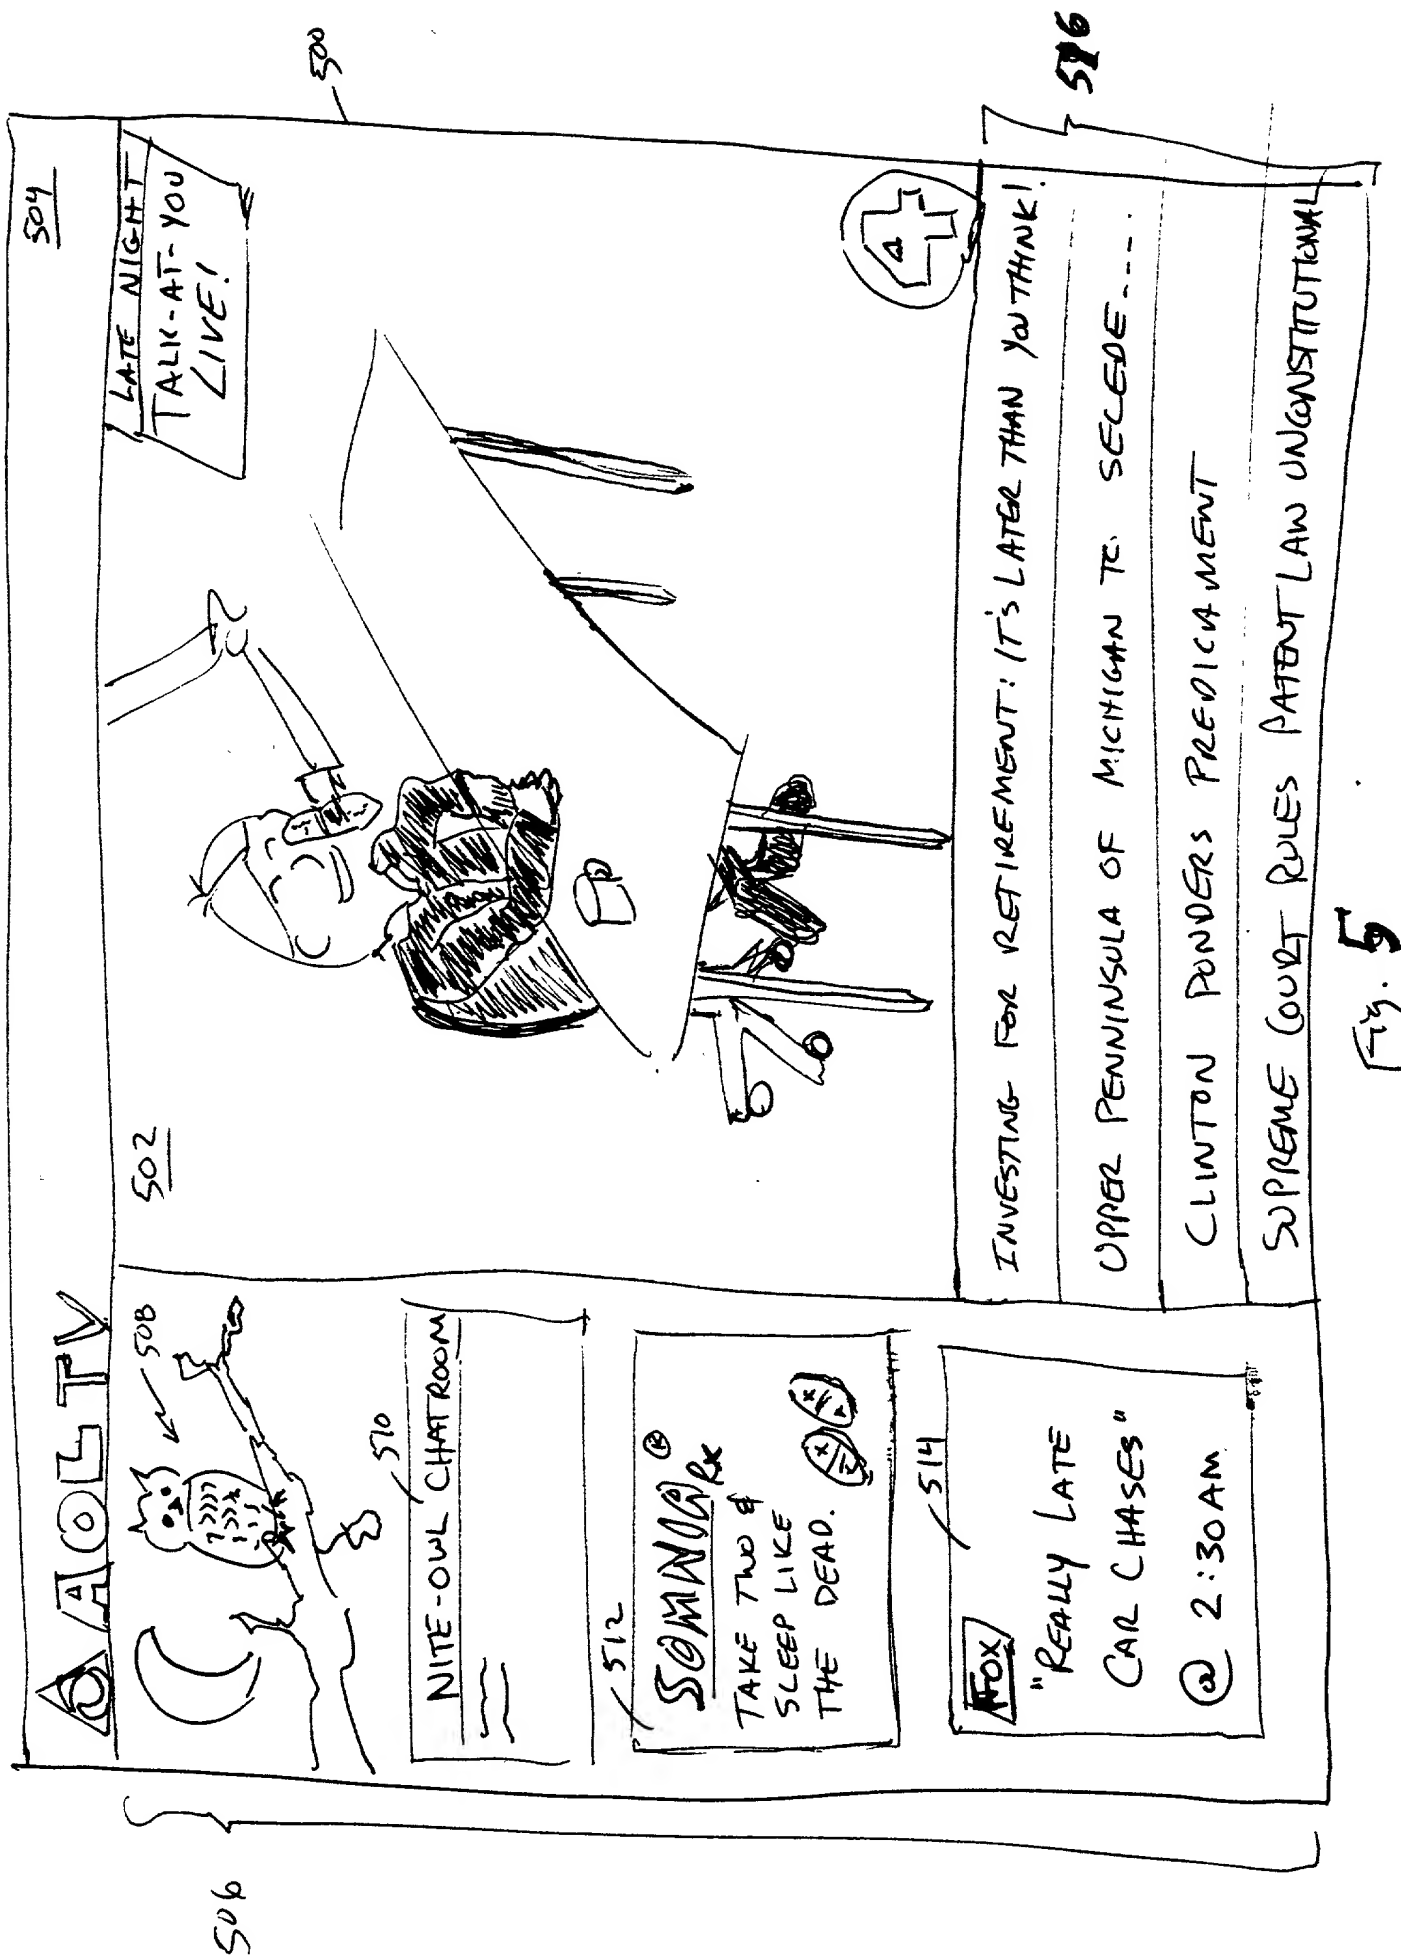 504
AOLTV
500
LATE NIGHT
TALK-AT-YOU
LIVE!
502
508
506
510
NITE-OWL CHATROOM
512
SOMNOR® Rx
TAKE TWO &
SLEEP LIKE
THE DEAD.
514
FOX
"REALLY LATE
CAR CHASES"
@ 2:30AM
4
516
INVESTING FOR RETIREMENT: IT'S LATER THAN YOU THINK!
UPPER PENNINSULA OF MICHIGAN TO SECEDE....
CLINTON PONDERS PREDICAMENT
SUPREME COURT RULES PATENT LAW UNCONSTITUTIONAL
Fig. 5